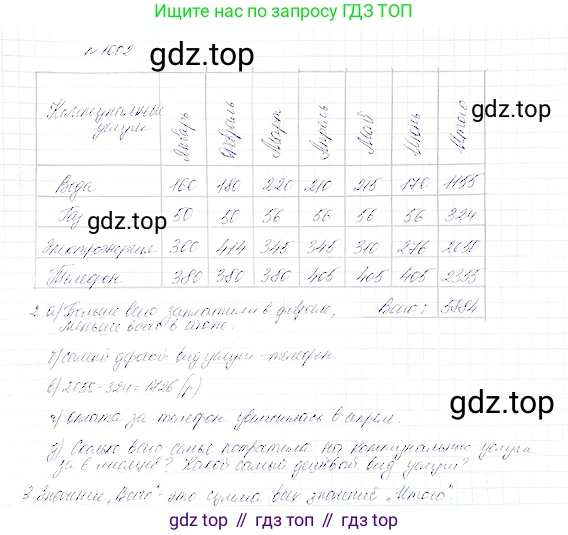 Ищите нас по запросу ГДЗ ТОП
№ 1002
gdz.top
Коммунальные услуги Январь Февраль Март Апрель Май Июнь Итого
gdz.top
Вода 160 180 220 210 215 170 1155
Газ 50 50 56 56 56 56 324
gdz.top
Электроэнергия 300 414 345 345 310 276 2050
Телефон 380 380 380 405 405 405 2355
2. а) Больше всего заплатили в феврале, Всего: 5884
меньше всего в июне.
б) самый дорогой вид услуги - телефон
gdz.top
в) 2050-324=1726 (р)
г) оплата за телефон увеличилась в апреле.
gdz.top
д) Сколько всего семья потратила на коммунальные услуги
за 6 месяцев? Какой самый дешёвый вид услуги?
gdz.top
3. Значение „Всего" - это сумма всех значений „Итого".
gdz.top // гдз топ // гдз.топ